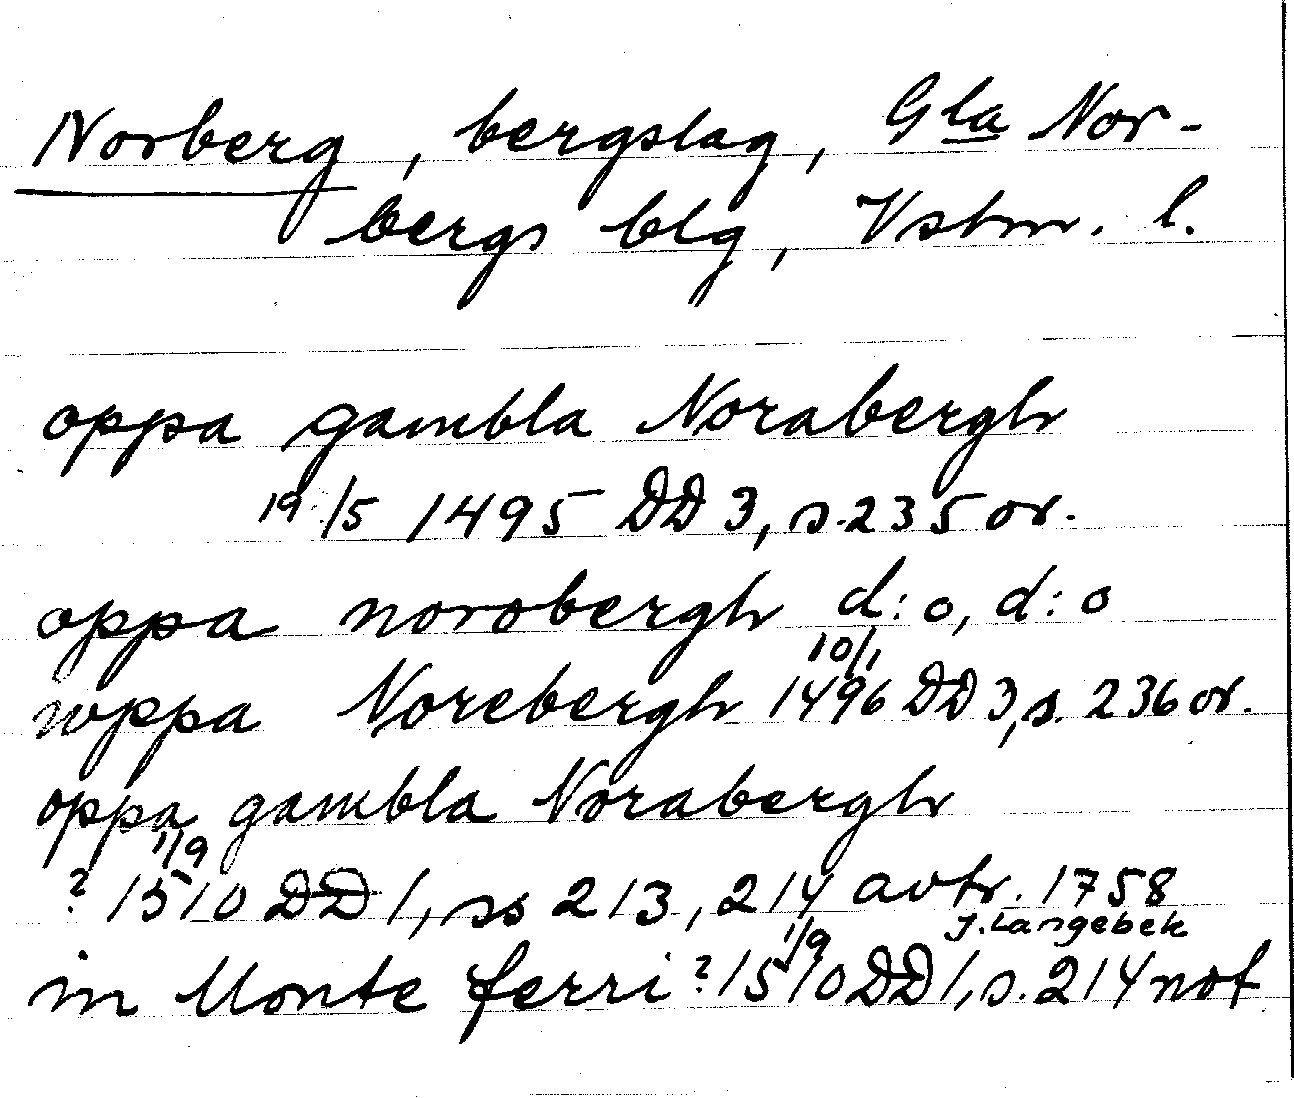 Norberg, bergslag, Gla Nor-
bergs blg, Vstm. l.
oppa gambla Norabergh
19/5 1495 DD 3, s. 235 or.
oppa norobergh d:o, d:o
10/1
woppa Norebergh 1496 DD 3, s. 236 or.
oppa gambla Norabergh
1/9
? 1510 DD 1, ss 213, 214 avtr. 1758
J. Langebek
1/9
in Monte ferri ? 1510 DD 1, s. 214 not